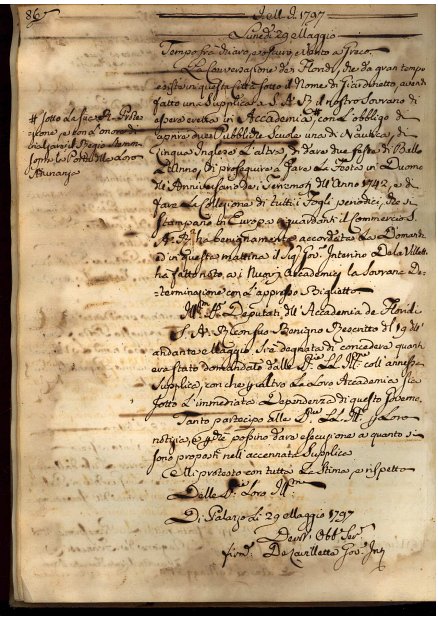 86
A. M. D. 1797
Lunedì 29 Maggio
Tempo fra chiaro, e oscuro e Vento a Greco.
La Conversazione dei Floridi, che da gran tempo
esiste in questa Città sotto il Nome di Casardinetto, avendo
fatto una Supplica a S. A. R. il nostro Sovrano di
essere eretta in Accademia con l'obbligo di
aprire due Pubbliche Scuole una di Nautica, di
Lingua Inglese l'altra, di dare due feste di Ballo
l'Anno, di proseguire a fare la Festa in Duomo
nell'Anniversario dei Terremoti dell'Anno 1742, e di
fare la Collezione di tutti i Fogli periodici, che si
stampano in Europa riguardanti il Commercio S.
A. R. ha benignamente accordata la Domanda
ed in questa mattina il Sig.r Gov.r Interino De la Villette
ha fatto noto, a i Nuovi Accademici la Sovrana De-
terminazione con l'appresso Biglietto.
# sotto la sua R. Prote-
zione, e con l'onore di
inalzare il Regio stemma
sopra la Porta della Loro
Adunanza
Ill.mi SS.ri Deputati dell'Accademia de Floridi
S. A. R. con suo Benigno Rescritto del 19 dell'
andante Maggio, si è degnata di concedere quanto
era stato domandato dalle SS.rie LL. Ill.me coll'annessa
Supplica, con che per altro la Loro Accademia sia
sotto l'immediata Dipendenza di questo Governo.
Tanto partecipo alle SS.rie LL. Ill.me p loro
notizia, e p che possino dare esecuzione a quanto si
sono proposti nell'accennata Supplica
E mi protesto con tutta la stima, e rispetto
Delle SS.rie Loro Ill.me
Di Palazzo li 29 Maggio 1797
Dev.mo Obb.mo Ser.re
firm.o De Lavillette Gov.re Int.